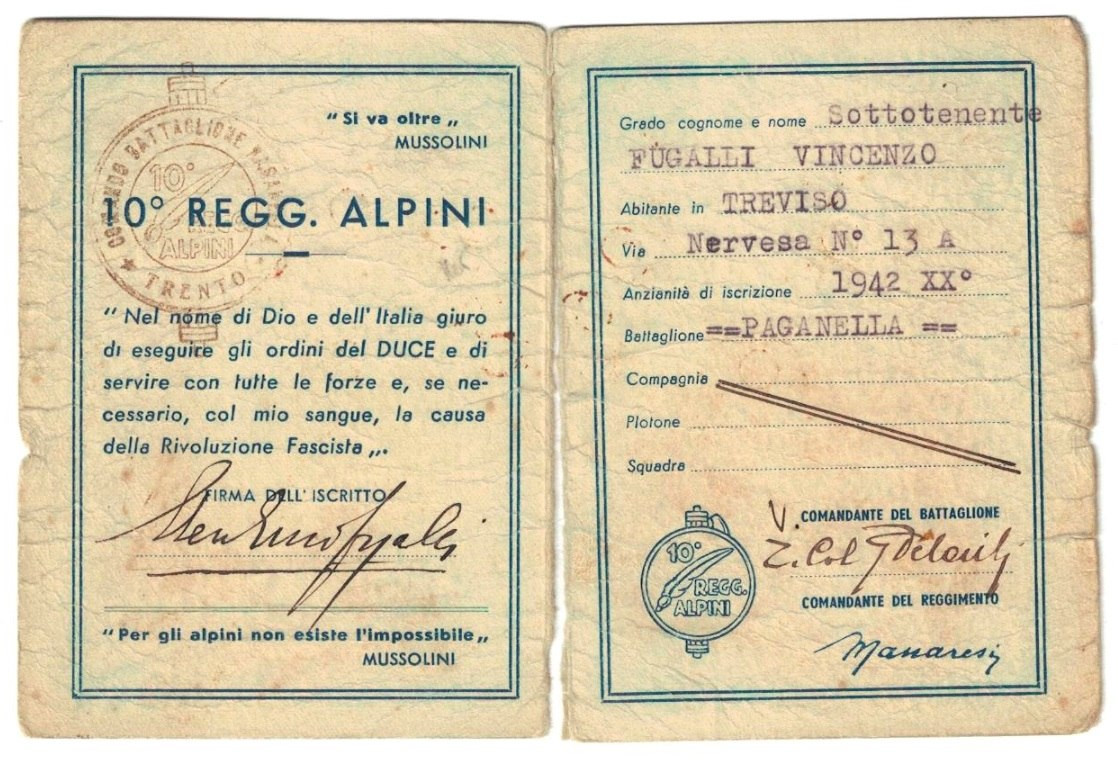 „ Si va oltre „
MUSSOLINI
10° REGG. ALPINI
COMANDO BATTAGLIONE
10°
REGG.
ALPINI
TRENTO
„ Nel nome di Dio e dell'Italia giuro
di eseguire gli ordini del DUCE e di
servire con tutte le forze e, se ne-
cessario, col mio sangue, la causa
della Rivoluzione Fascista „.
FIRMA DELL'ISCRITTO
„ Per gli alpini non esiste l'impossibile „
MUSSOLINI
Grado cognome e nome Sottotenente
FUGALLI VINCENZO
Abitante in TREVISO
Via Nervesa N° 13 A
Anzianità di iscrizione 1942 XX°
Battaglione ==PAGANELLA ==
Compagnia
Plotone
Squadra
V. COMANDANTE DEL BATTAGLIONE
T. Col
COMANDANTE DEL REGGIMENTO
Manaresi
10°
REGG.
ALPINI